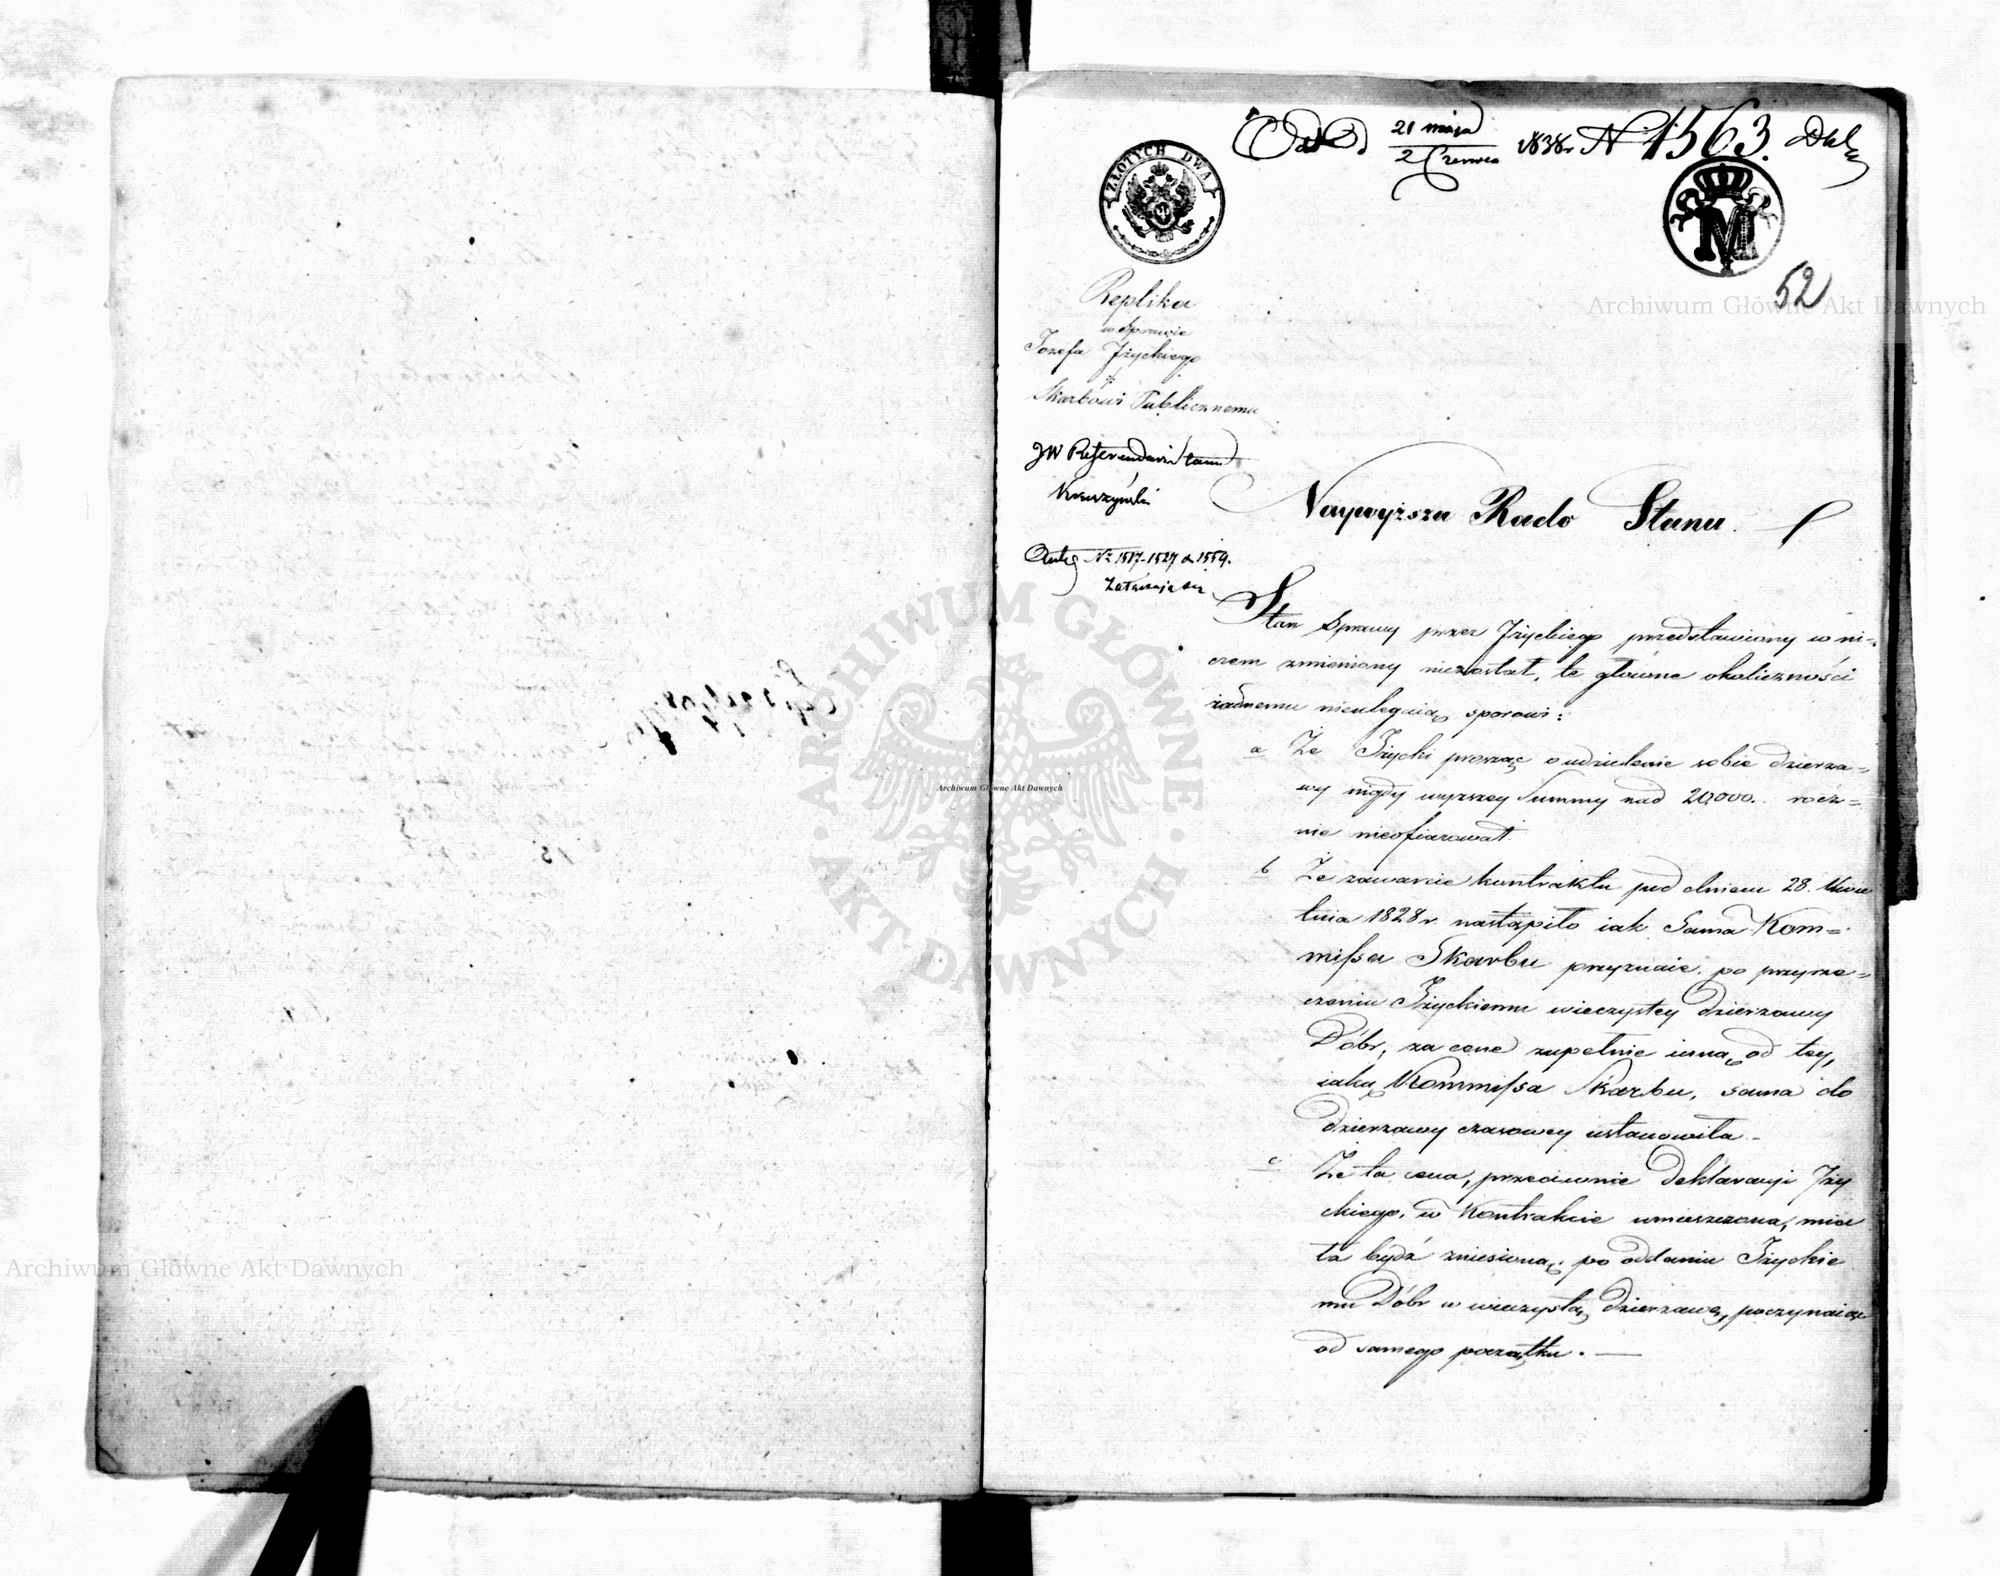 Odd. 21 maja / 2 Czerwca 1838r N. 1563.
ZŁOTYCH DWA
M
52
Replika
w Sprawie
Jozefa Iżyckiego
Skarbowi Publicznemu
JW Referendarz Stanu
Anteq. Nr 1517-1527 & 1554.
Załączają się
Naywyższa Rado Stanu.
Stan Sprawy przez Iżyckiego przedstawiony w ni-
czem zmieniony niezostał, te główne okoliczności
żadnemu nieulegaią sporowi:
a Że Iżycki prosząc o udzielenie sobie dzierża=
wy nigdy wyższey Summy nad 20,000. rocz=
nie nieofiarował.
b Że zawarcie kontraktu pod dniem 28. Kwie
tnia 1828r. nastąpiło iak Sama Kom=
missa Skarbu przyznaie. po przyrze=
czeniu Iżyckiemu wieczystey dzierzawy
Dóbr, za cene zupełnie inną od tey,
iaką Kommissa Skarbu, sama do
dzierzawy czasowey ustanowiła.-
c Że ta cena, przeciwnie Deklaracyi Iży
ckiego, w Kontrakcie umieszczona, mia
ła bydź zniesioną, po oddaniu Iżyckie
mu Dóbr w wieczystą dzierzawę, poczynaiąc
od samego początku. —
Archiwum Główne Akt Dawnych
Archiwum Główne Akt Dawnych
Archiwum Główne Akt Dawnych
ARCHIWUM GŁÓWNE
AKT DAWNYCH